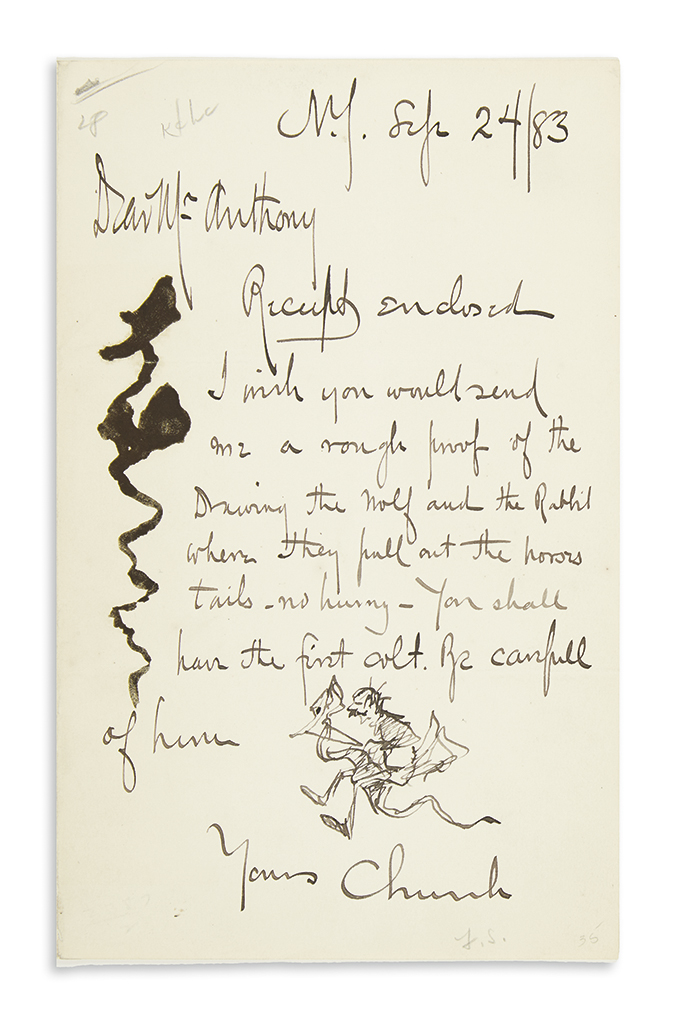 N.Y. Sep 24/83
Dear Mr Anthony
Receipt enclosed
I wish you would send
me a rough proof of the
Drawing the Wolf and the Rabbit
where they pull out the horses
tails - no hurry - You shall
have the first colt. Be carefull
of him
Yours Church